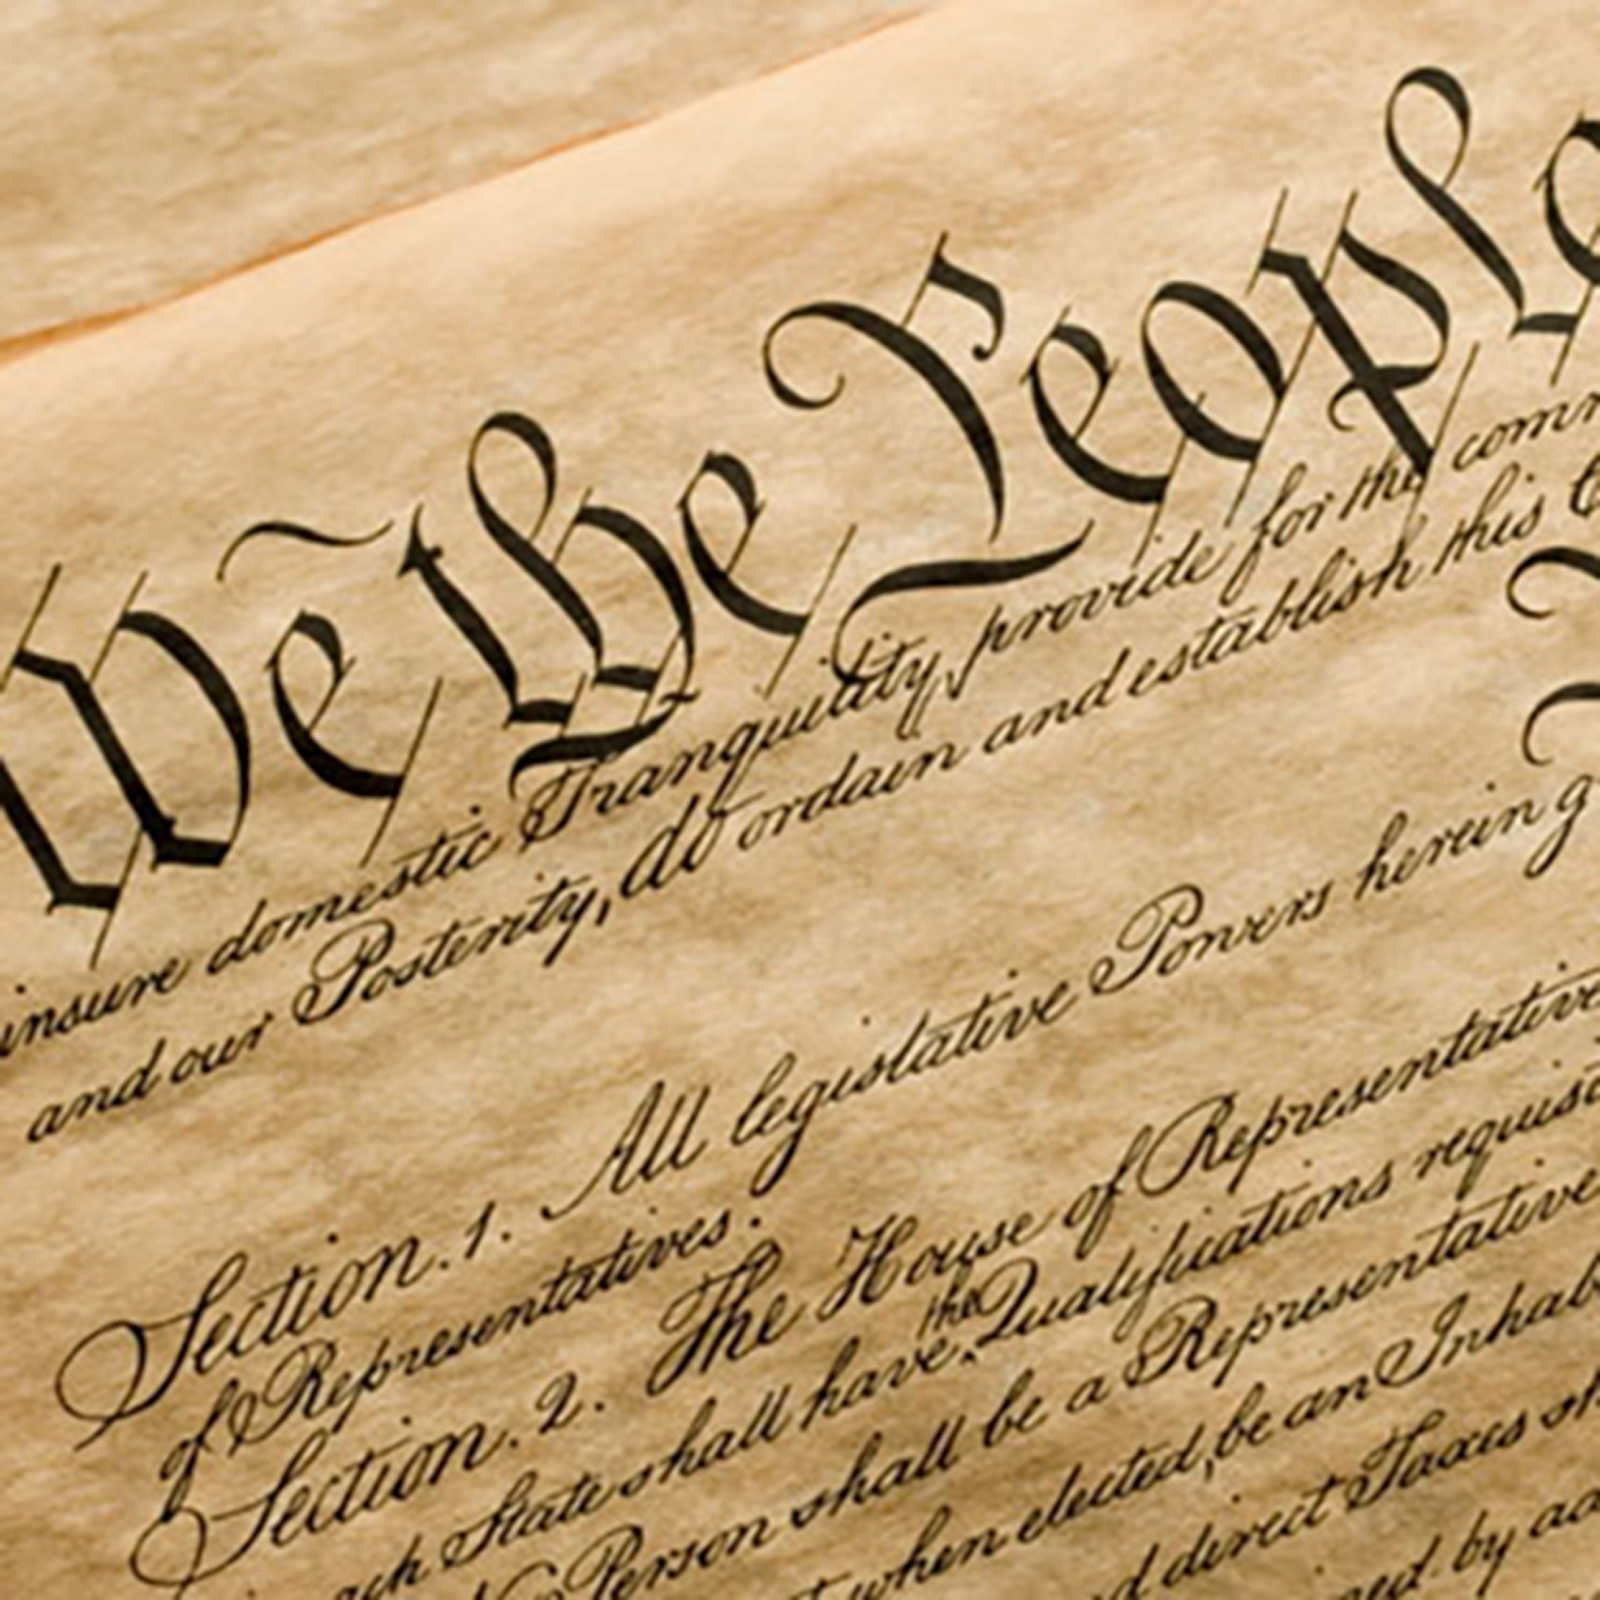 We the People
insure domestic Tranquility, provide for the comm
and our Posterity, do ordain and establish this C
Section. 1. All legislative Powers herein g
of Representatives.
Section. 2. The House of Representative
the
ach State shall have Qualifications requisi
No Person shall be a Representative
when elected, be an Inhab
d direct Taxes sh
ned by ad